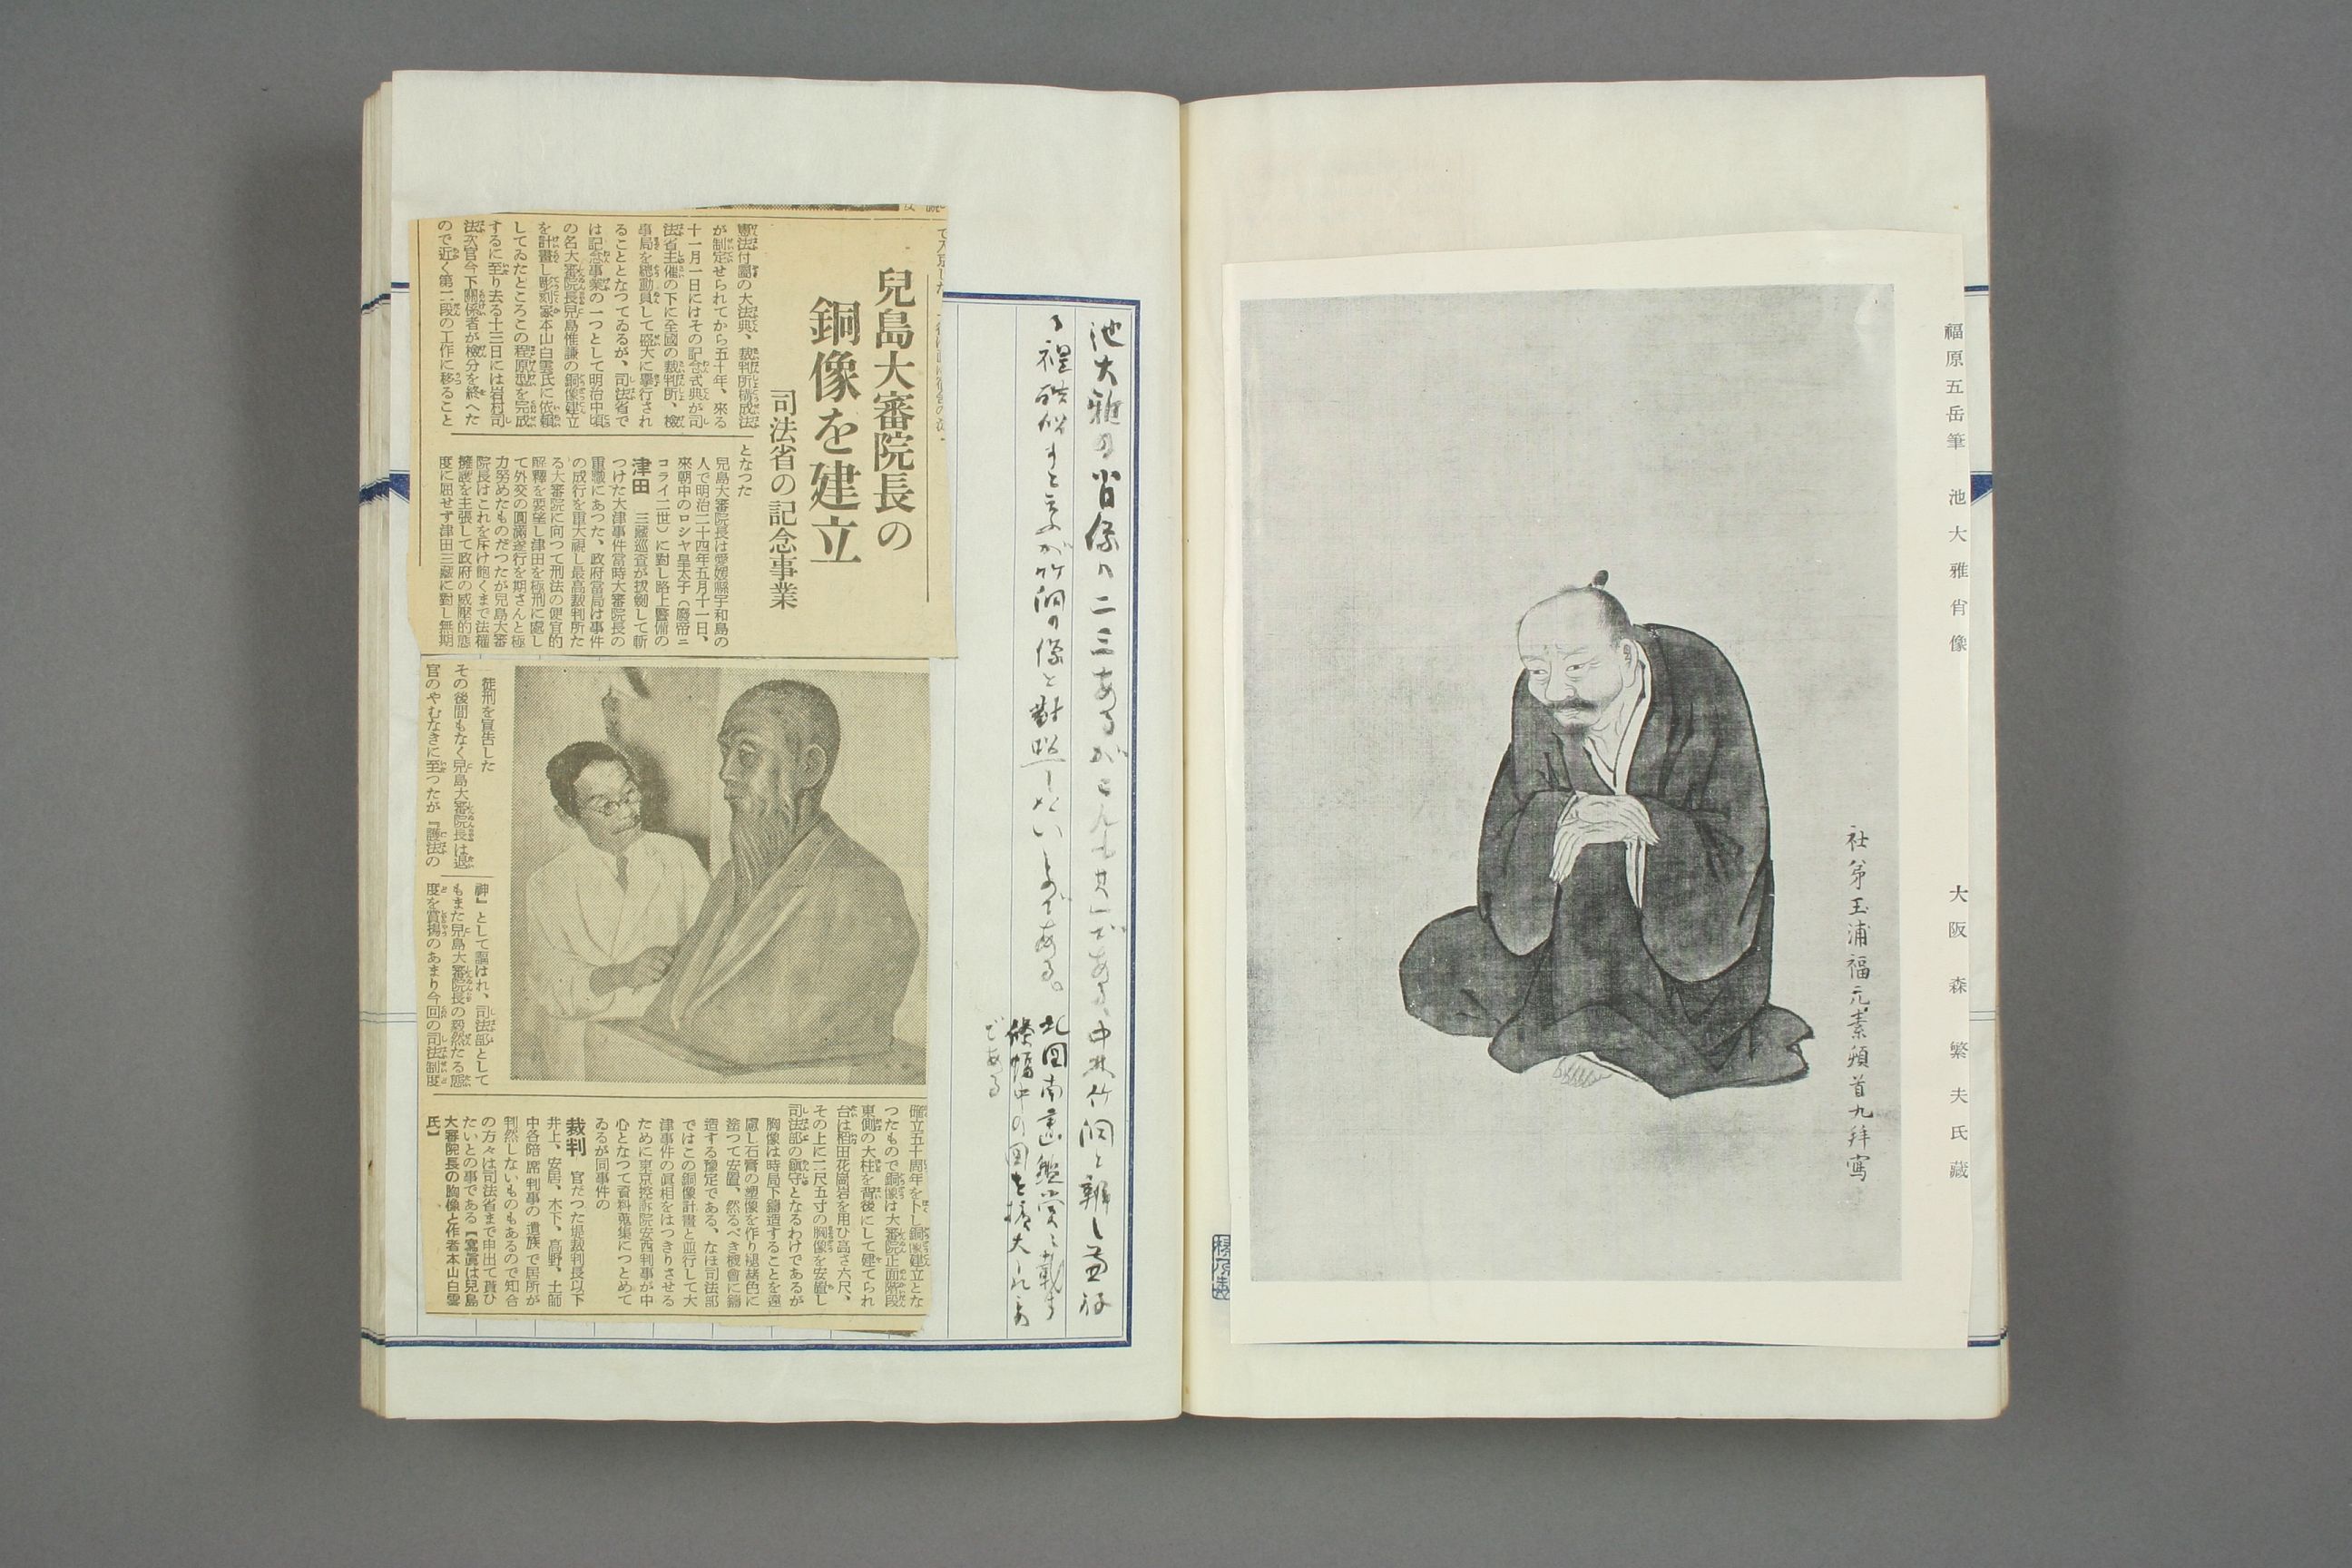 福原五岳筆 池大雅肖像 大阪 森繁夫氏藏
社弟玉浦福元素頓首九拜寫
池大雅の肖像は二三あるがこれも其一である 中林竹洞と
の像と對照しないものである。
北田南畫鑑賞に載す
條幅中の図を擴大したもの
である
兒島大審院長の
銅像を建立
司法省の記念事業
憲法付屬の大法典、裁判所構成法
が制定せられてから五十年、來る
十一月一日にはその記念式典が司
法省主催の下に全國の裁判所、檢
事局を總動員して盛大に擧行され
ることとなつてゐるが、司法省で
は記念事業の一つとして明治中頃
の名大審院長兒島惟謙の銅像建立
を計畫し彫刻家本山白雲氏に依頼
してゐたところこの程原型を完成
するに至り去る十三日には岩村司
法次官今下關係者が檢分を終へた
ので近く第二段の工作に移ること
となつた
兒島大審院長は愛媛縣宇和島の
人で明治二十四年五月十一日、
來朝中のロシヤ皇太子（廢帝ニ
コライ二世）に對し路上警備の
津田 三藏巡査が拔劍して斬
つけた大津事件當時大審院長の
重職にあつた、政府當局は事件
の成行を重大視し最高裁判所た
る大審院に向つて刑法の便宜的
解釋を要望し津田を極刑に處し
て外交の圓滿遂行を期さんと極
力努めたものだつたが兒島大審
院長はこれを斥け飽くまで法權
擁護を主張して政府の威壓的態
度に屈せず津田三藏に對し無期
徒刑を宣告した
その後間もなく兒島大審院長は退
官のやむなきに至つたが『護法の
神』として謳はれ、司法部として
もまた兒島大審院長の毅然たる態
度を賞揚のあまり今回の司法制度
確立五十周年を卜し銅像建立とな
つたもので銅像は大審院正面階段
東側の大柱を背後にして建てられ
台は稻田花崗岩を用ひ高さ六尺、
その上に二尺五寸の胸像を安置し
司法部の鎭守となるわけであるが
胸像は時局下鑄造することを遠
慮し石膏の塑像を作り褪赭色に
塗つて安置、然るべき機會に鑄
造する豫定である、なほ司法部
ではこの銅像計畫と並行して大
津事件の眞相をはつきりさせる
ために東京控訴院安西判事が中
心となつて資料蒐集につとめて
ゐるが同事件の
裁判 官だつた堤裁判長以下
井上、安居、木下、高野、土師
中各陪席判事の遺族で居所が
判然しないものもあるので知合
の方々は司法省まで申出て貰ひ
たいとの事である【寫眞は兒島
大審院長の胸像と作者本山白雲
氏】